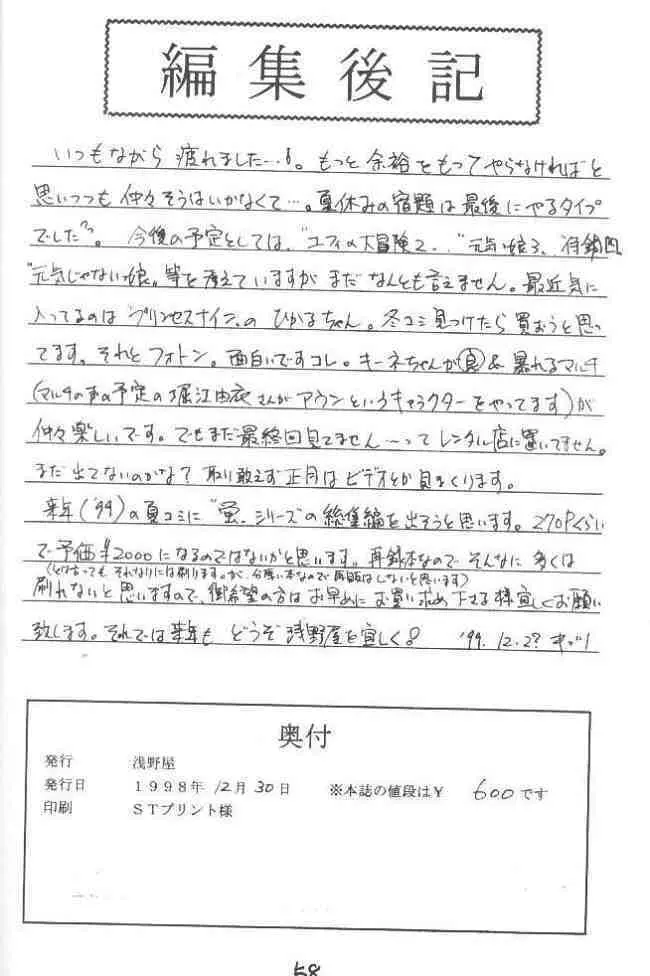 編集後記
いつもながら 疲れました…。もっと 余裕をもって やらなければと
思いつつも 仲々そうはいかなくて…。夏休みの宿題は最後にやるタイプ
でした。今後の予定としては、"ユフィの大冒険2"、"元気な娘3、
"元気じゃない娘"等を考えていますが まだ なんとも言えません。最近気に
入ってるのは"プリンセスナイン"の ひかるちゃん。冬コミ見つけたら 買おうと思っ
てます。それと フォトン。面白いですコレ。キーネちゃんが㊂&暴れるマルチ
(マルチの声の予定の堀江由衣さんが アウンというキャラクターをやってます)が
仲々楽しいです。でもまだ最終回見てません…って レンタル店に置いてません。
まだ 出てないのかな? 取り敢えず 正月は ビデオとか 見まくります。
来年('99)の夏コミに"蛍"シリーズの総集編を出そうと思います。270Pくらい
で予価¥2000になるのではないかと思います。再録本なので そんなに 多くは
(とは言っても それなりには刷りますが、分厚い本なので再販はしないと思います)
刷れないと思いますので、御希望の方は お早めに お買い求め下さる様宜しくお願い
致します。それでは来年も どうぞ 浅野屋を宜しく '99.12.27
奥付
発行 浅野屋
発行日 1998年 12月 30日 ※本誌の値段は¥ 600です
印刷 STプリント様
58